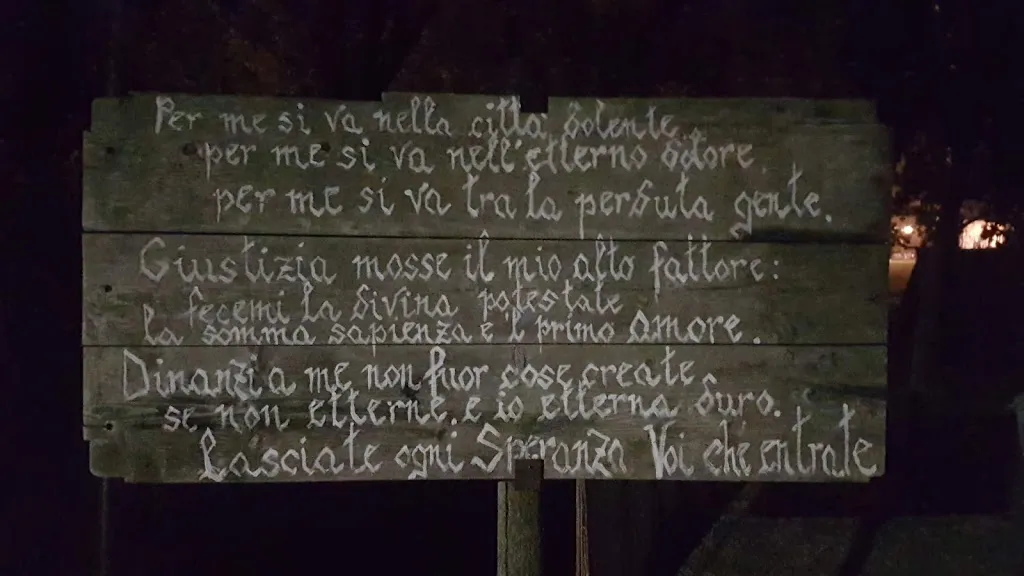 Per me si va nella città dolente,
per me si va nell'etterno dolore,
per me si va tra la perduta gente.
Giustizia mosse il mio alto fattore:
fecemi la divina potestate
la somma sapienza e 'l primo Amore.
Dinanzi a me non fuor cose create,
se non etterne, e io etterna duro.
Lasciate ogni Speranza Voi ch'entrate